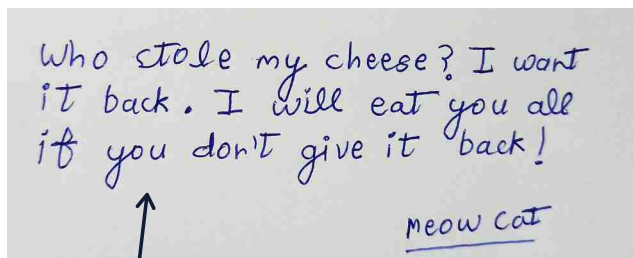 Who stole my cheese? I want
it back. I will eat you all
if you don't give it back!
Meow Cat